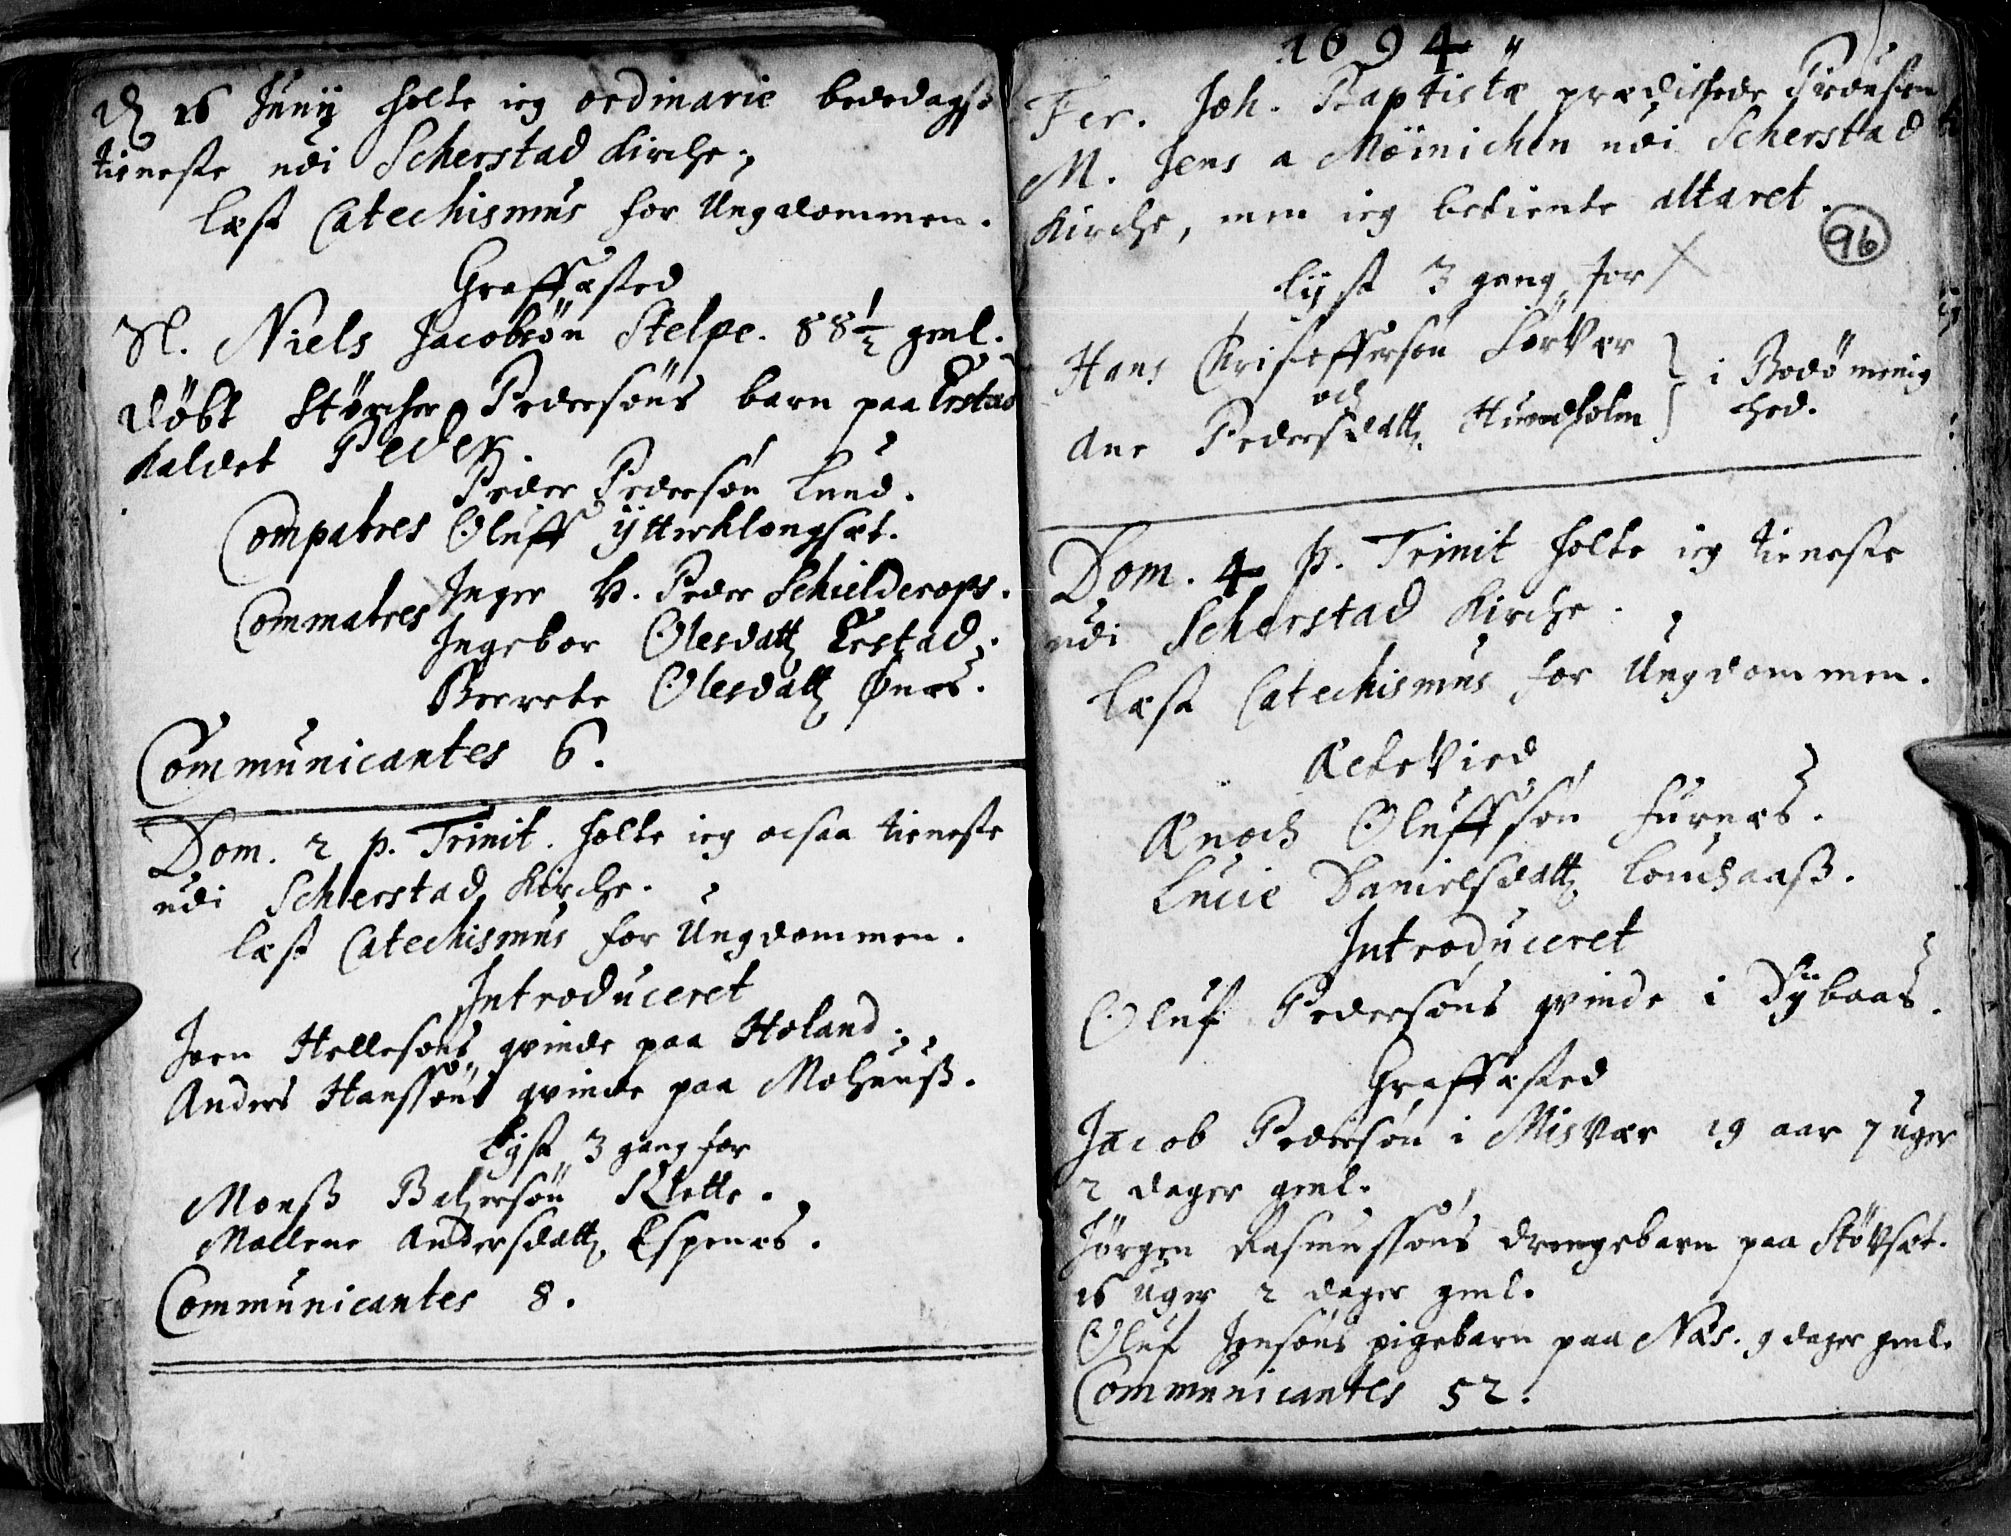 D 16 Junij holte ieg ordinarie bededagss
tieneste udi Scherstad Kirche,
læst Catechismus for Ungdommen.
Graffæsted
Sl. Niels Jacobsön Stelpe. 88 1/2 gml.
Döbt Störcher Pedersöns barn paa Erstad
kaldet Peder.
Peder Pedersön Lund.
Compatres Oluff ÿtterklongset.
Commatres Inger H. Peder Schielderops.
Ingebor Olesdatt Erstad.
Berrete Olesdatt Önes.
Communicantes 6.
Dom. 2 p. Trinit. holte ieg ocsaa tieneste
udi Scherstad Kirche.
læst Catechismus for Ungdommen.
Introduceret
Joen Hellesöns qvinde paa Holand.
Anders Hanssöns qvinde paa Mohuuss.
Lyst 3 gang for
Monss Baltzersön Klette.
Mallene Andersdatt Espenes.
Communicantes 8.
1694
Fer. Joh. Baptistæ prædichede Prousten
M. Jens a Möinichen udi Scherstad
Kirche, men ieg betiente altaret.
96
lÿst 3 gang for
Hans Christoffersön Sörvær
och
Ane Pedersdatt Hundholm
i Bodö menig
hed.
Dom. 4 p. Trinit holte ieg tieneste
udi Scherstad Kirche.
læst Catechismus for Ungdommen.
Echtevied
Enoch Oluffsön Furnæs.
Lucie Danielsdatt
Introduceret
Oluf Pedersöns qvinde i Dÿbaas.
Graffæsted
Jacob Pedersön i Misvær 19 aar 7 uger
2 dager gml.
Jörgen Rasmussöns drengebarn paa Stövset.
16 uger 2 dager gml.
Oluf Jensöns pigebarn paa Næs. 9 dager gml.
Communicantes 52.